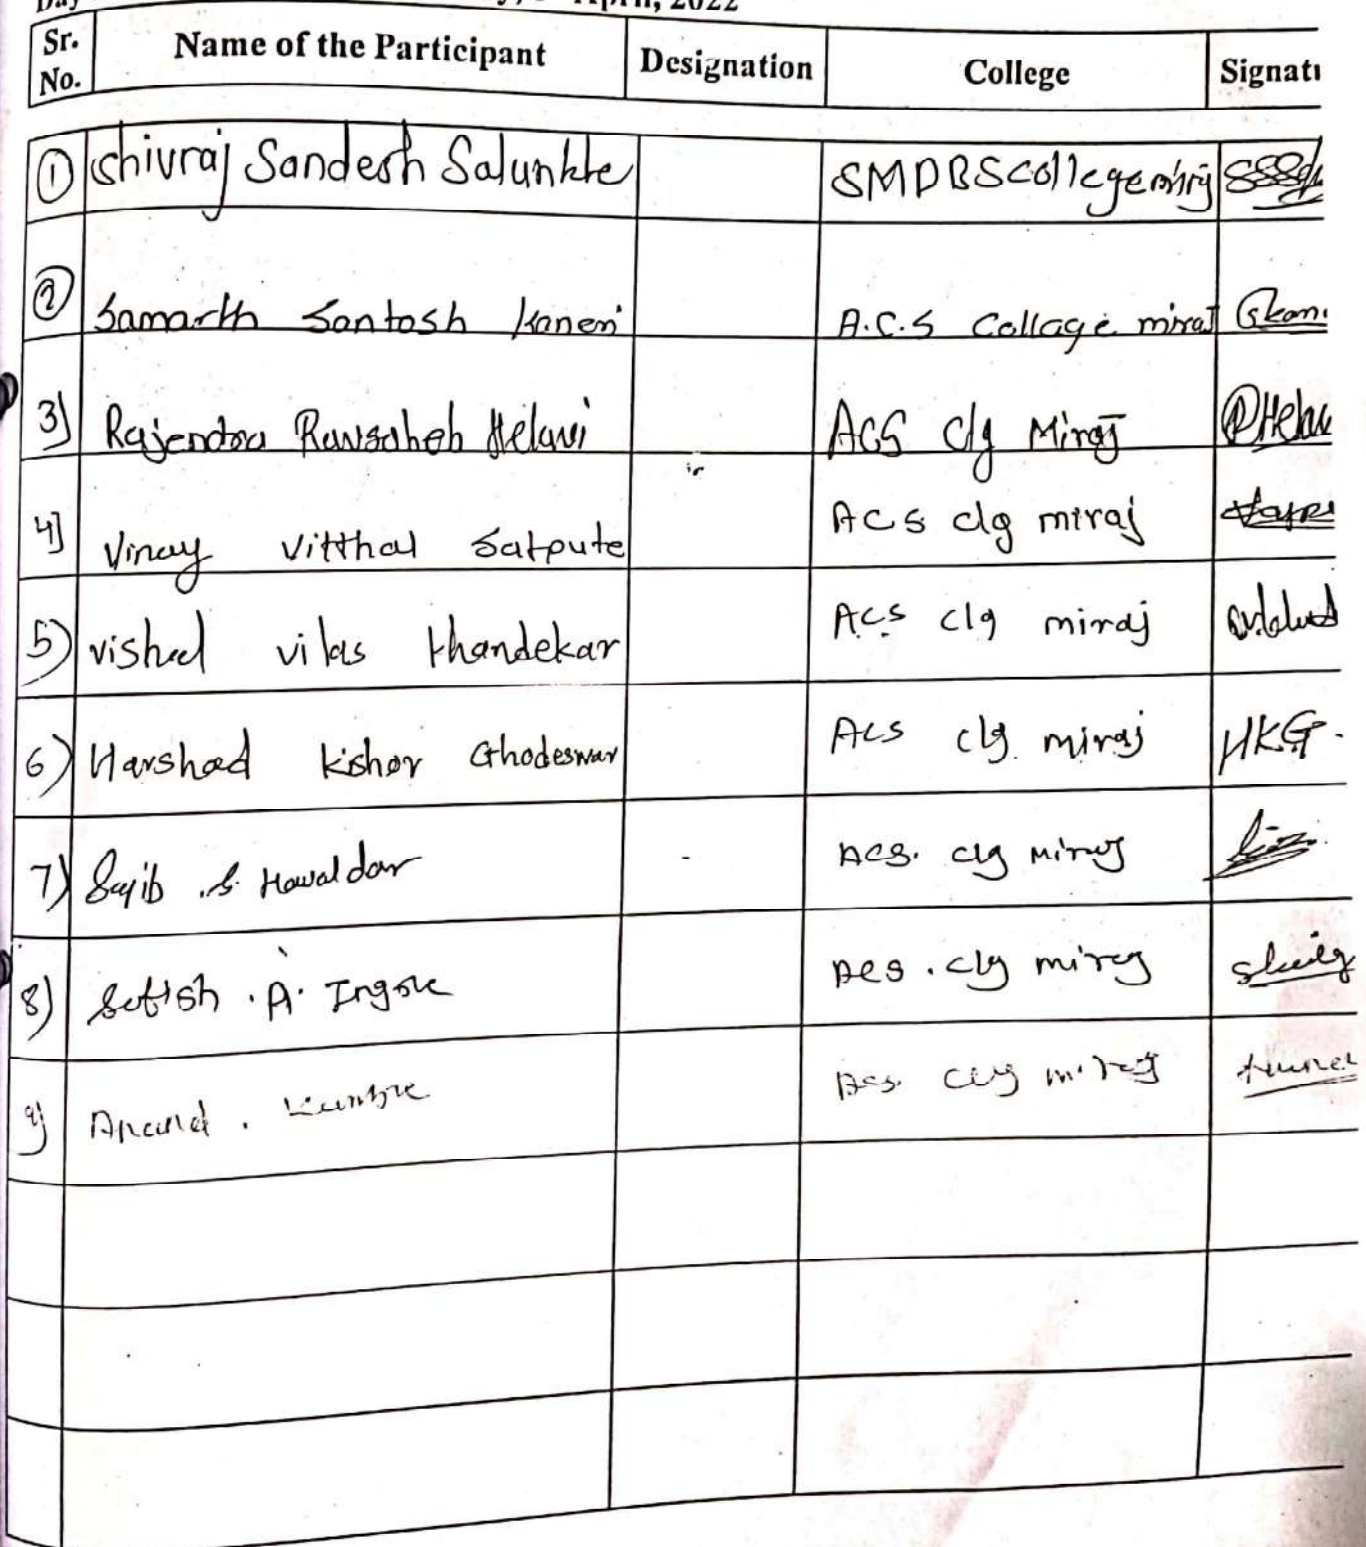 April, 2022
Sr. No. Name of the Participant Designation College
1 Shivraj Sandesh Salunkhe SMDBS college miraj
2 Samarth Santosh Kaneri A.C.S Collage miraj
3) Rajendra Ravsaheb Helavi ACS clg Miraj
4) Vinay Vitthal Satpute ACS clg miraj
5) vishal vilas khandekar ACS clg miraj
6) Harshad kishor Ghodeswar ACS clg. miraj HKG.
7) S. Hawaldar - ACS. clg miraj
8) Satish . A. Ingole ACS . clg miraj
9) Anand . ACS. clg miraj